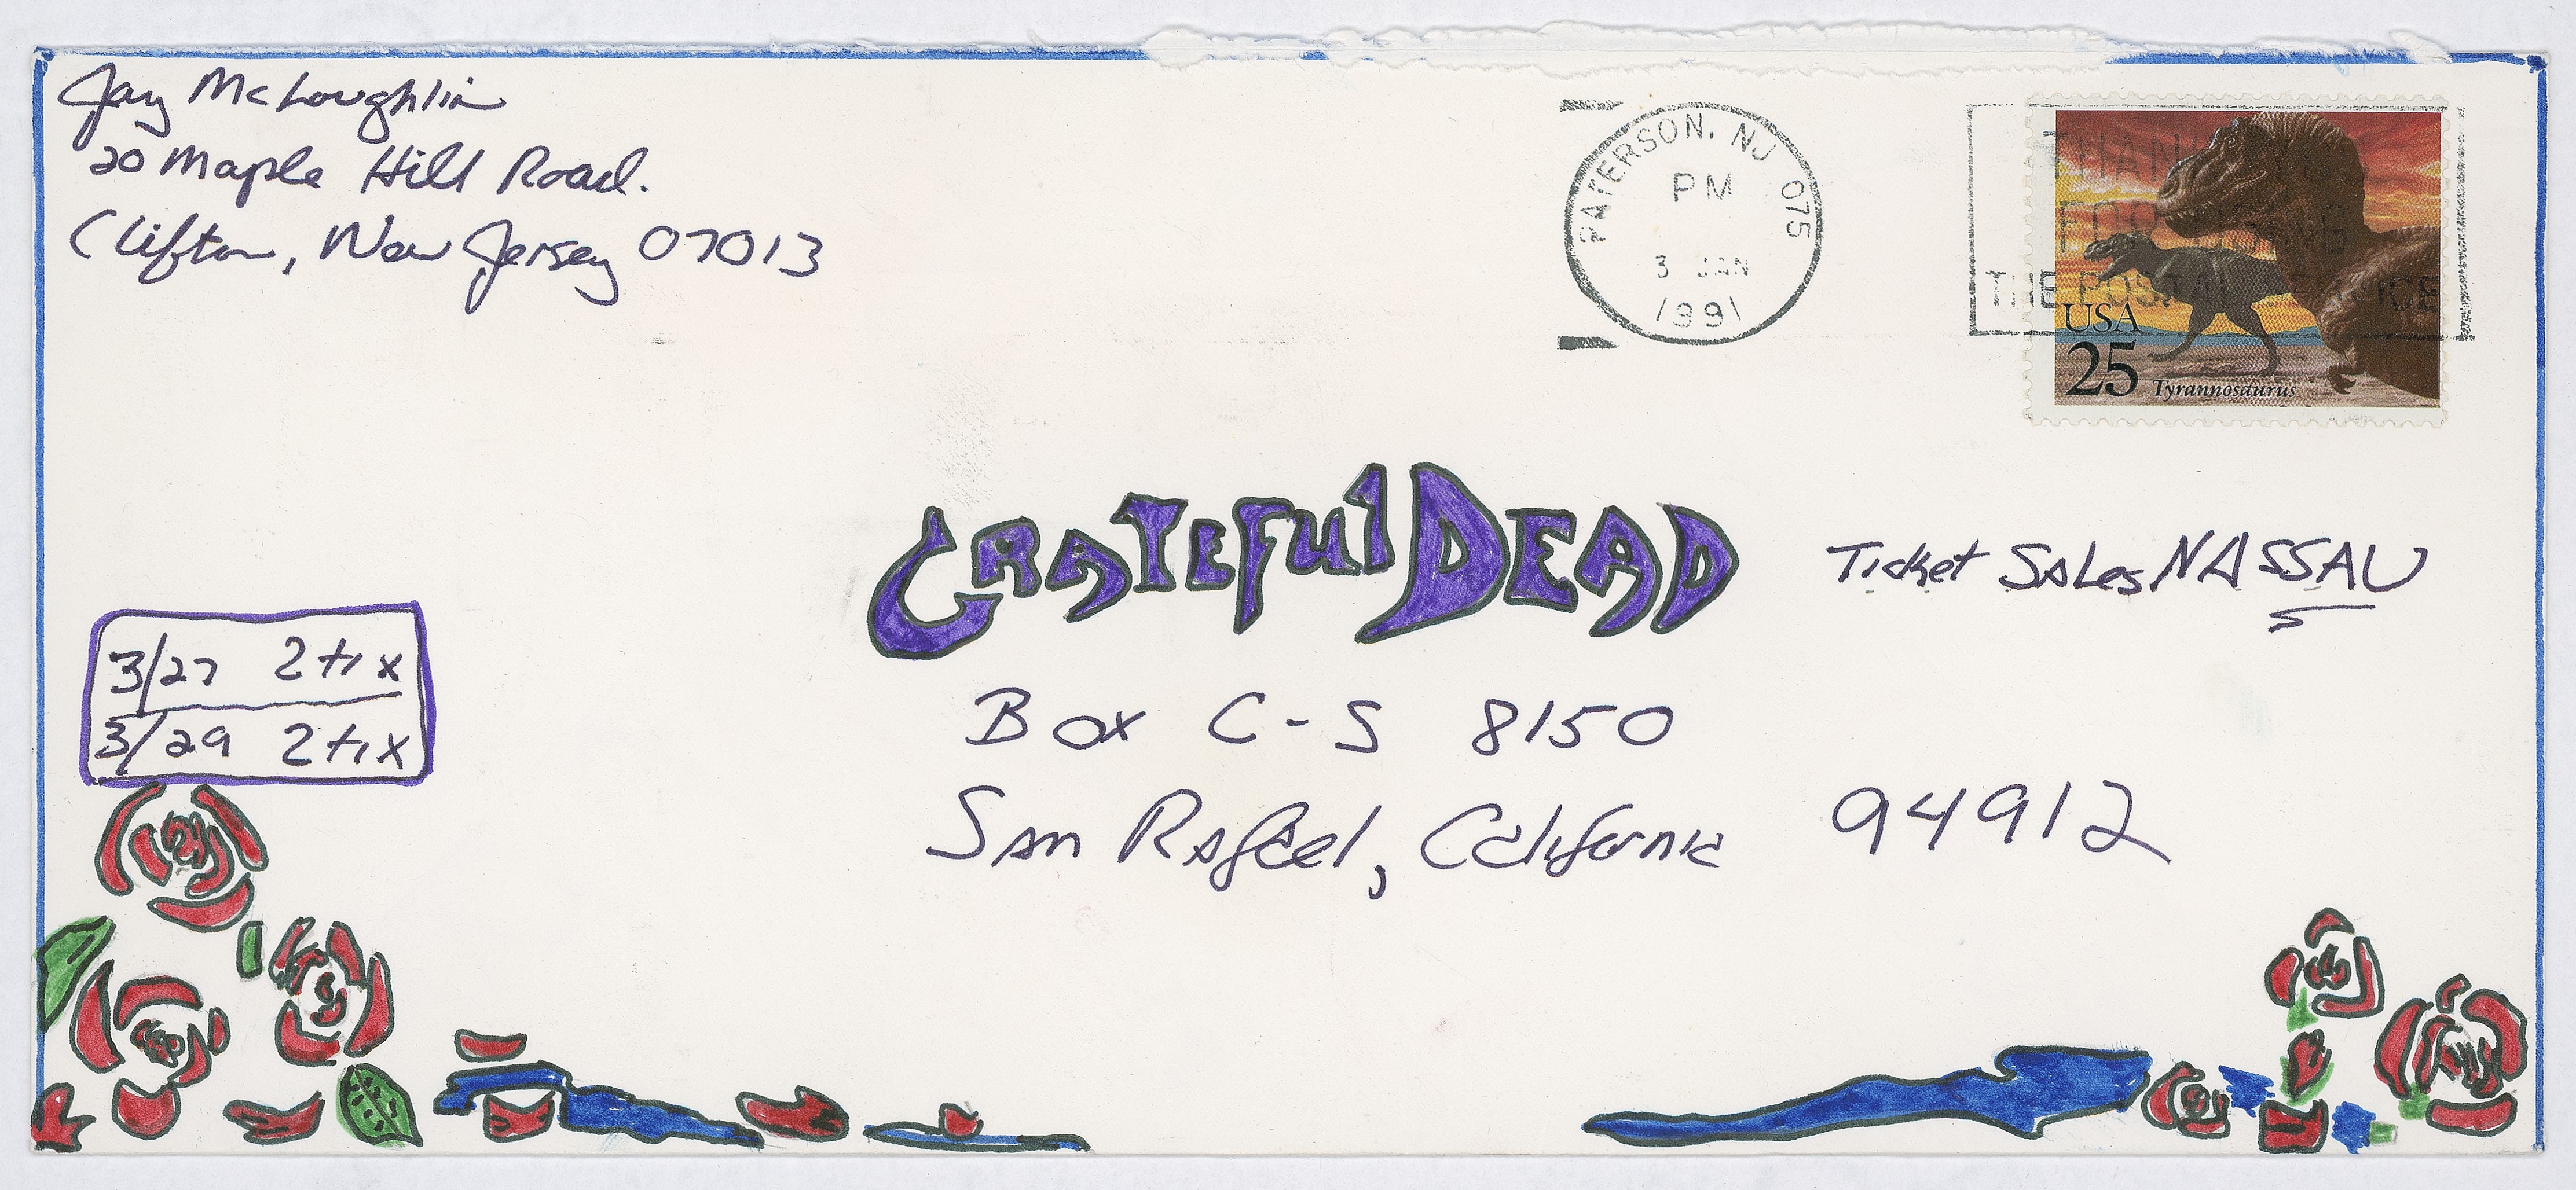 Jay McLoughlin
20 Maple Hill Road.
Clifton, New Jersey 07013
PATERSON, NJ 075
PM
3 JAN
1991
THANK YOU
FOR USING
THE POSTAL SERVICE
USA
25 Tyrannosaurus
GRATEFUL DEAD Ticket SALes NASSAU
Box C-S 8150
San Rafael, California 94912
3/27 2 tix
3/29 2 tix